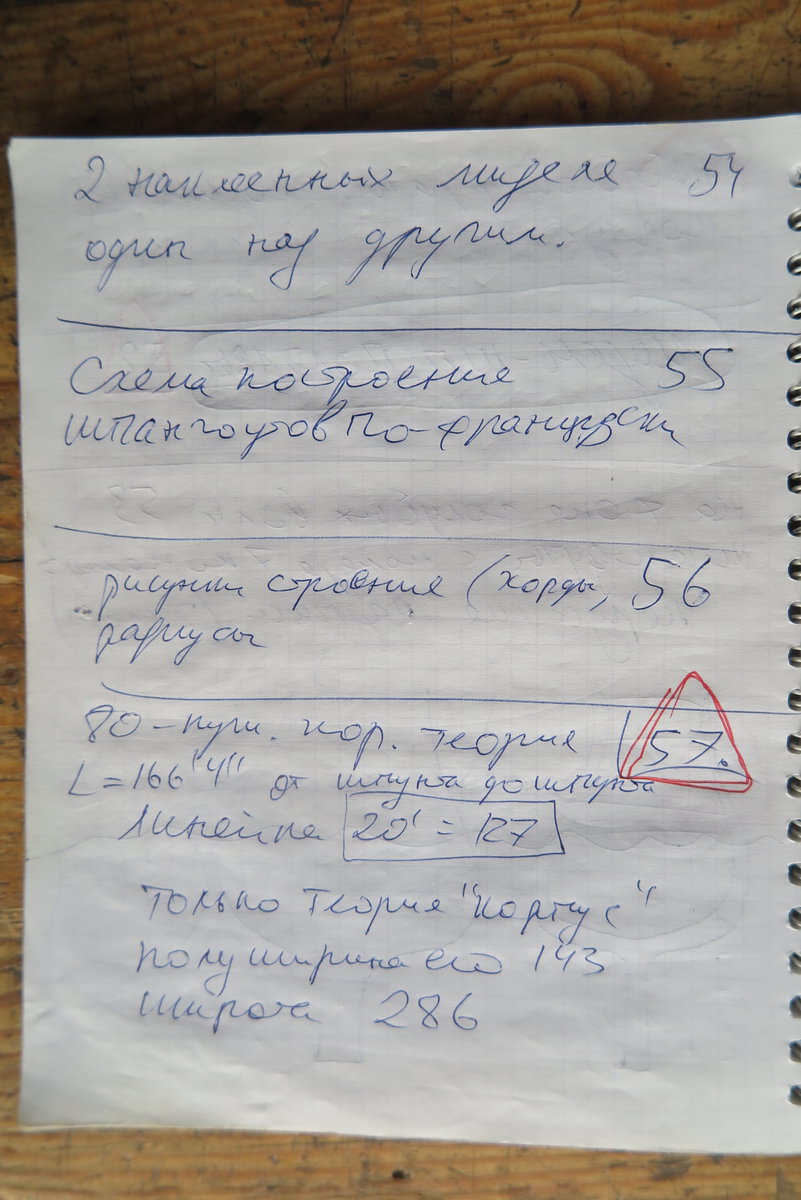 2 наклеенных миделя 54
один над другим.
Схема построение 55
шпангоутов по-французски
рисунки строение (хорды, 56
радиусы
80-пуш. кор. теория 57.
L=166'4" от шпунта до шпунта
Линейка 20' = 127
только теория "Корпус"
полуширина его 143
широта 286